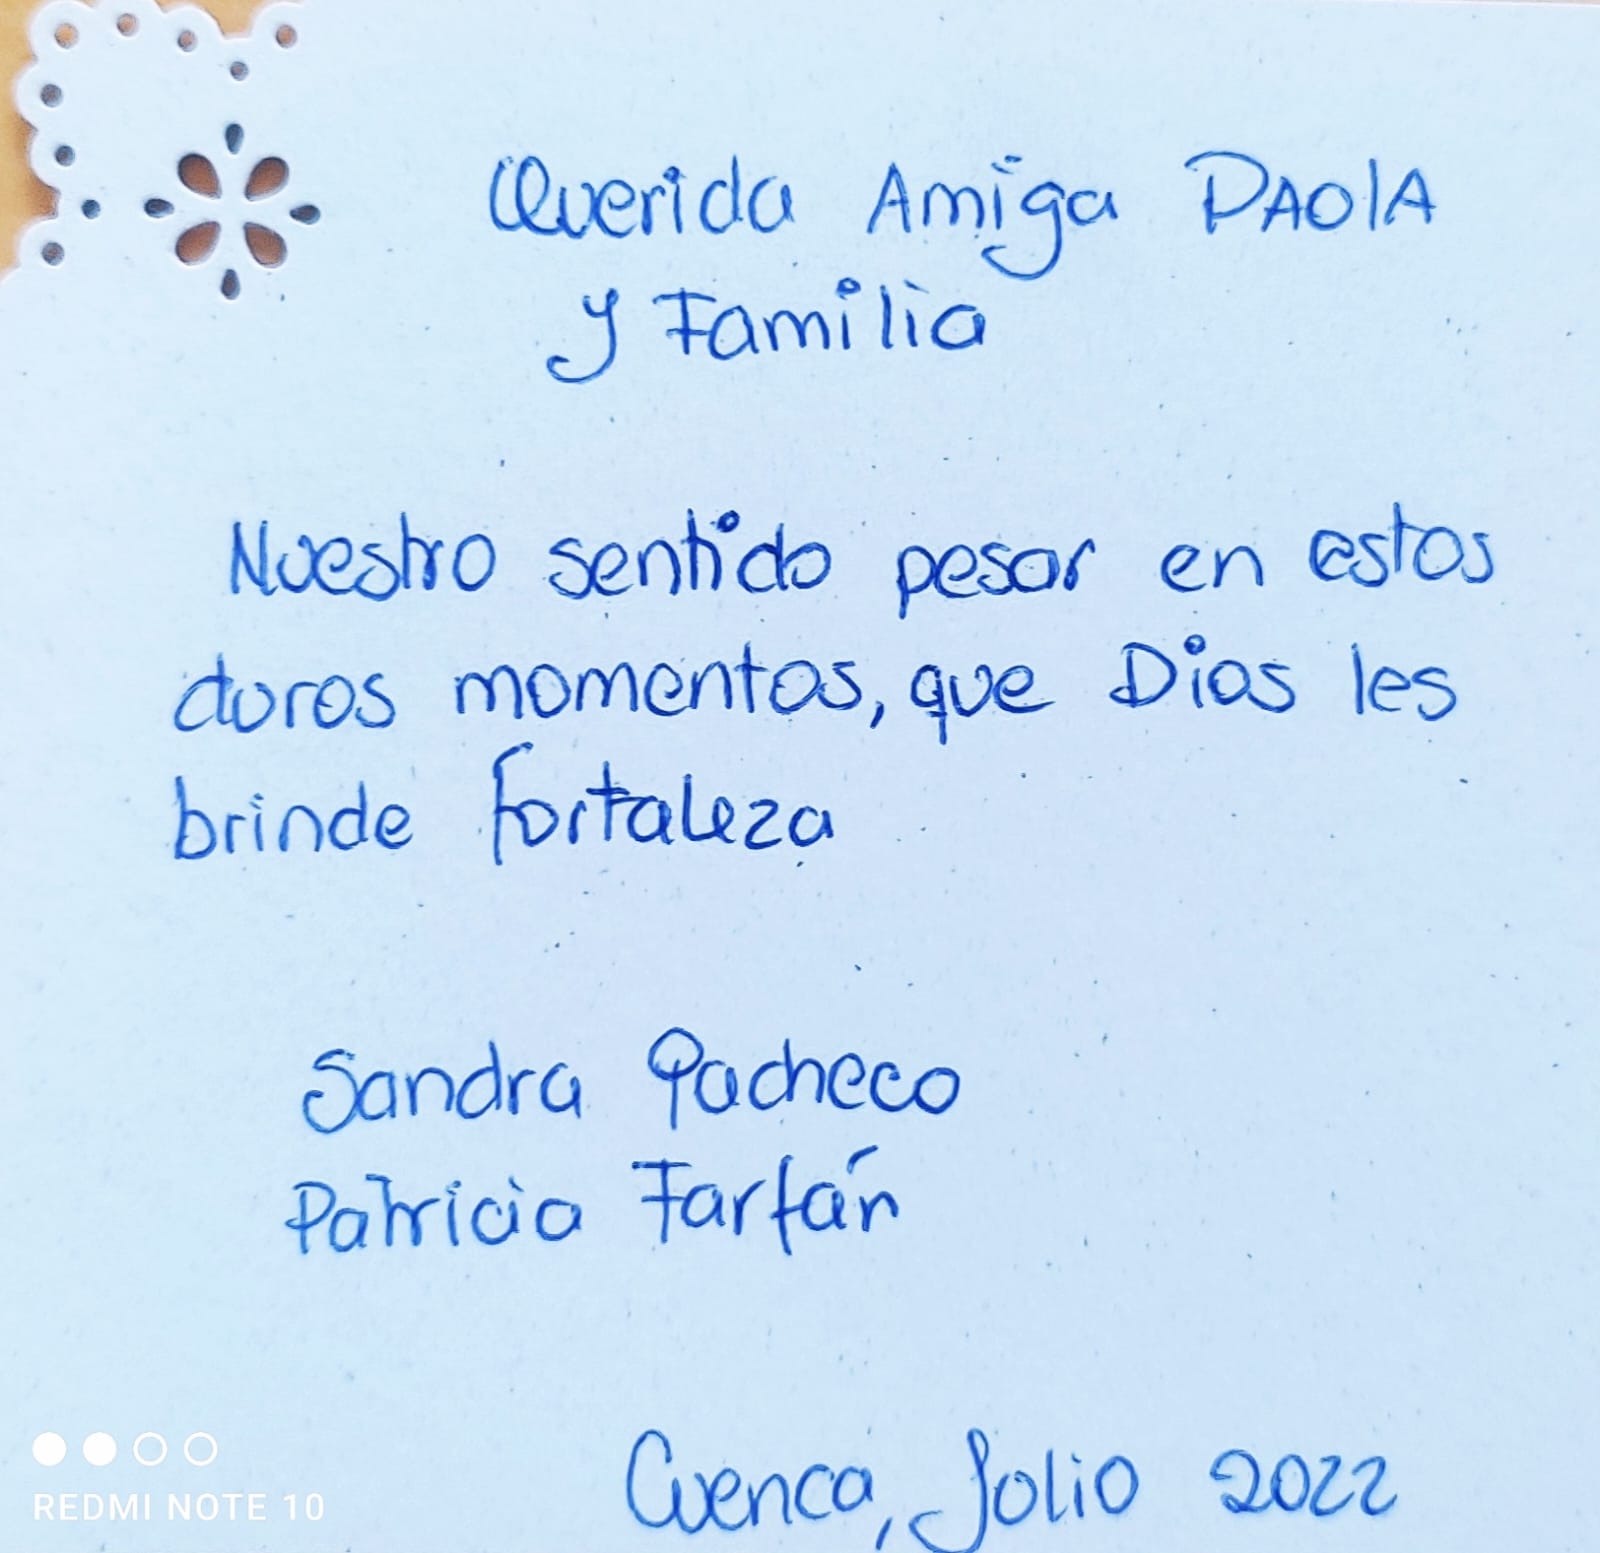 Querida Amiga PAOlA
y Familia
Nuestro sentido pesar en estos
duros momentos, que Dios les
brinde fortaleza
Sandra Pacheco
Patricia Farfán
Cuenca, Julio 2022
REDMI NOTE 10